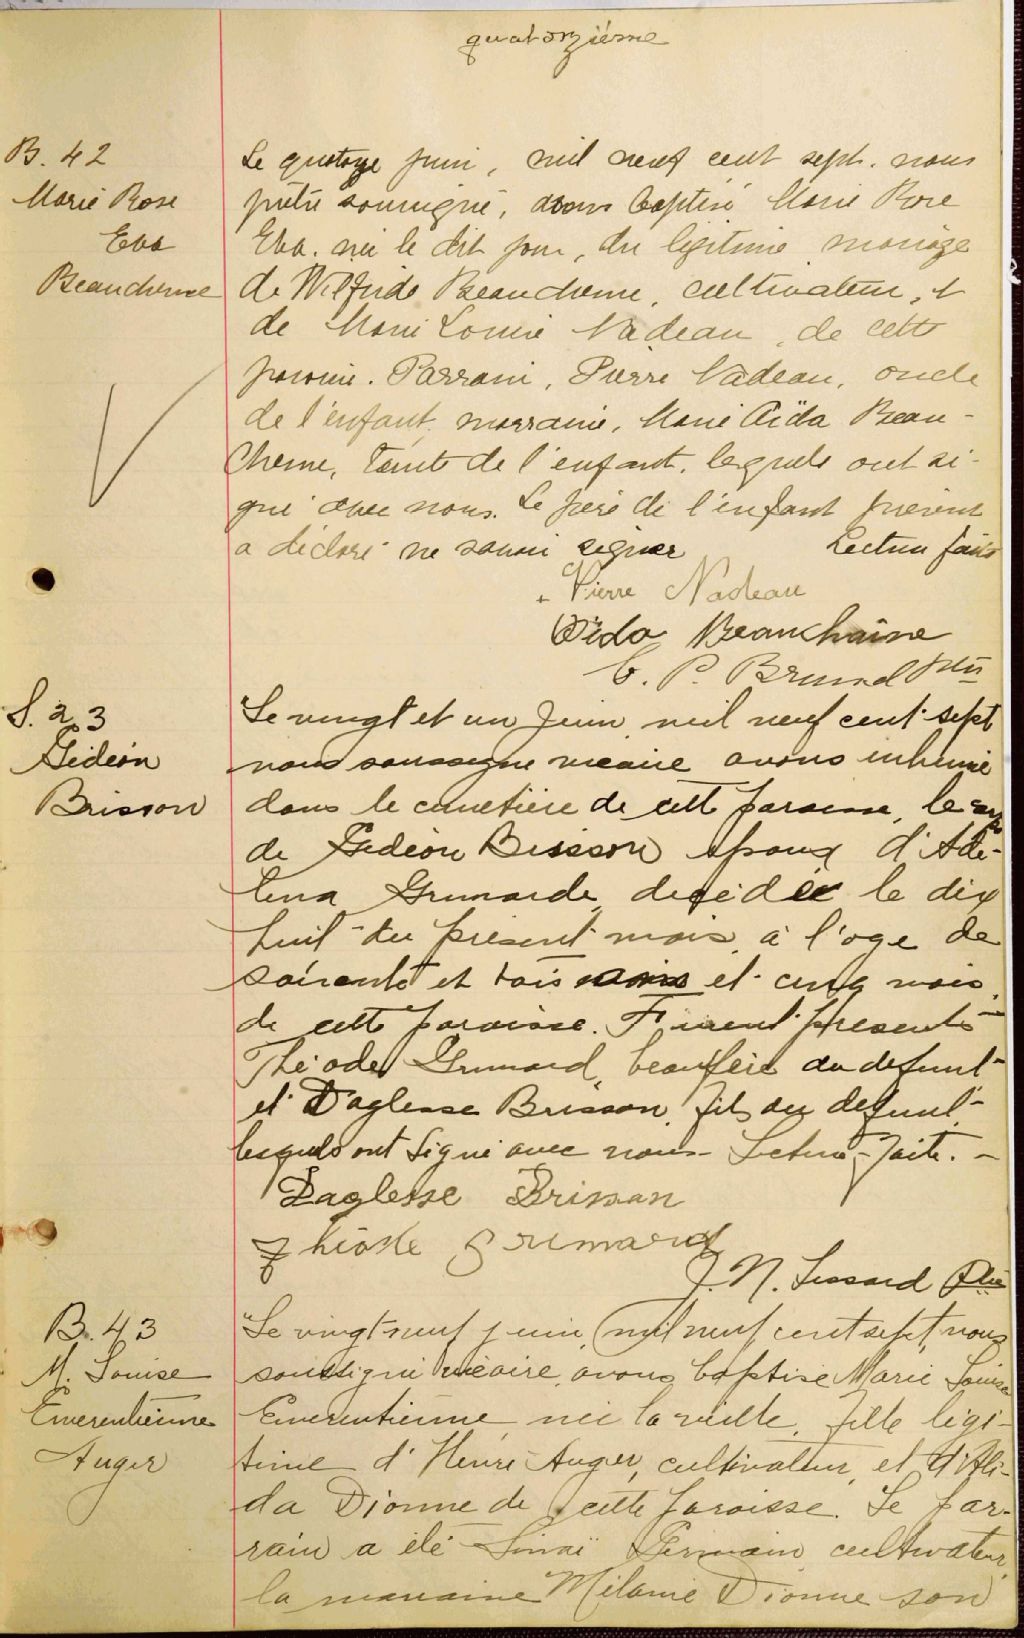 quatorzième
B. 42
Marie Rose
Eva
Beauchesne
Le quatorze juin, mil neuf cent sept. nous
prêtre soussigné, avons baptisé Marie Rose
Eva. née le dit jour, du légitime mariage
de Wilfrido Beauchesne, cultivateur, et
de Marie Louise Nadeau, de cette
paroisse. Parrain, Pierre Nadeau, oncle
de l'enfant, marraine, Marie Aïda Beau-
chesne, tante de l'enfant, lesquels ont si-
gné avec nous. Le père de l'enfant présent
a déclaré ne savoir signer Lecture faite
Pierre Nadeau
Aïda Beauchaine
C. P. Brunel ptre
S. 23
Gédéon
Brisson
Le vingt et un juin mil neuf cent sept
nous soussigné vicaire avons inhumé
dans le cimetière de cette paroisse, le corps
de Gédéon Brisson époux d'Adé-
lina Grimarde, décédée le dix
huit du présent mois, à l'age de
soixante et trois ans et cinq mois,
de cette paroisse. Furent présents
Théode Grimard, beaufrère du defunt
et Daglesse Brisson, fils du defunt,
lesquels ont signé avec nous - Lecture faite. -
Daglesse Brisson
Théode Grimard
J. N. Lessard Ptre
B. 43
M. Louise
Emerentienne
Auger
Le vingt neuf juin, mil neuf cent sept, nous
soussigné vicaire, avons baptisé Marie Louise
Emerentienne née la veille, fille légi-
time d'Henri Auger, cultivateur, et d'Ali-
da Dionne de cette paroisse. Le par-
rain a été Sinaï Germain cultivateur,
la marraine Mélanie Dionne son